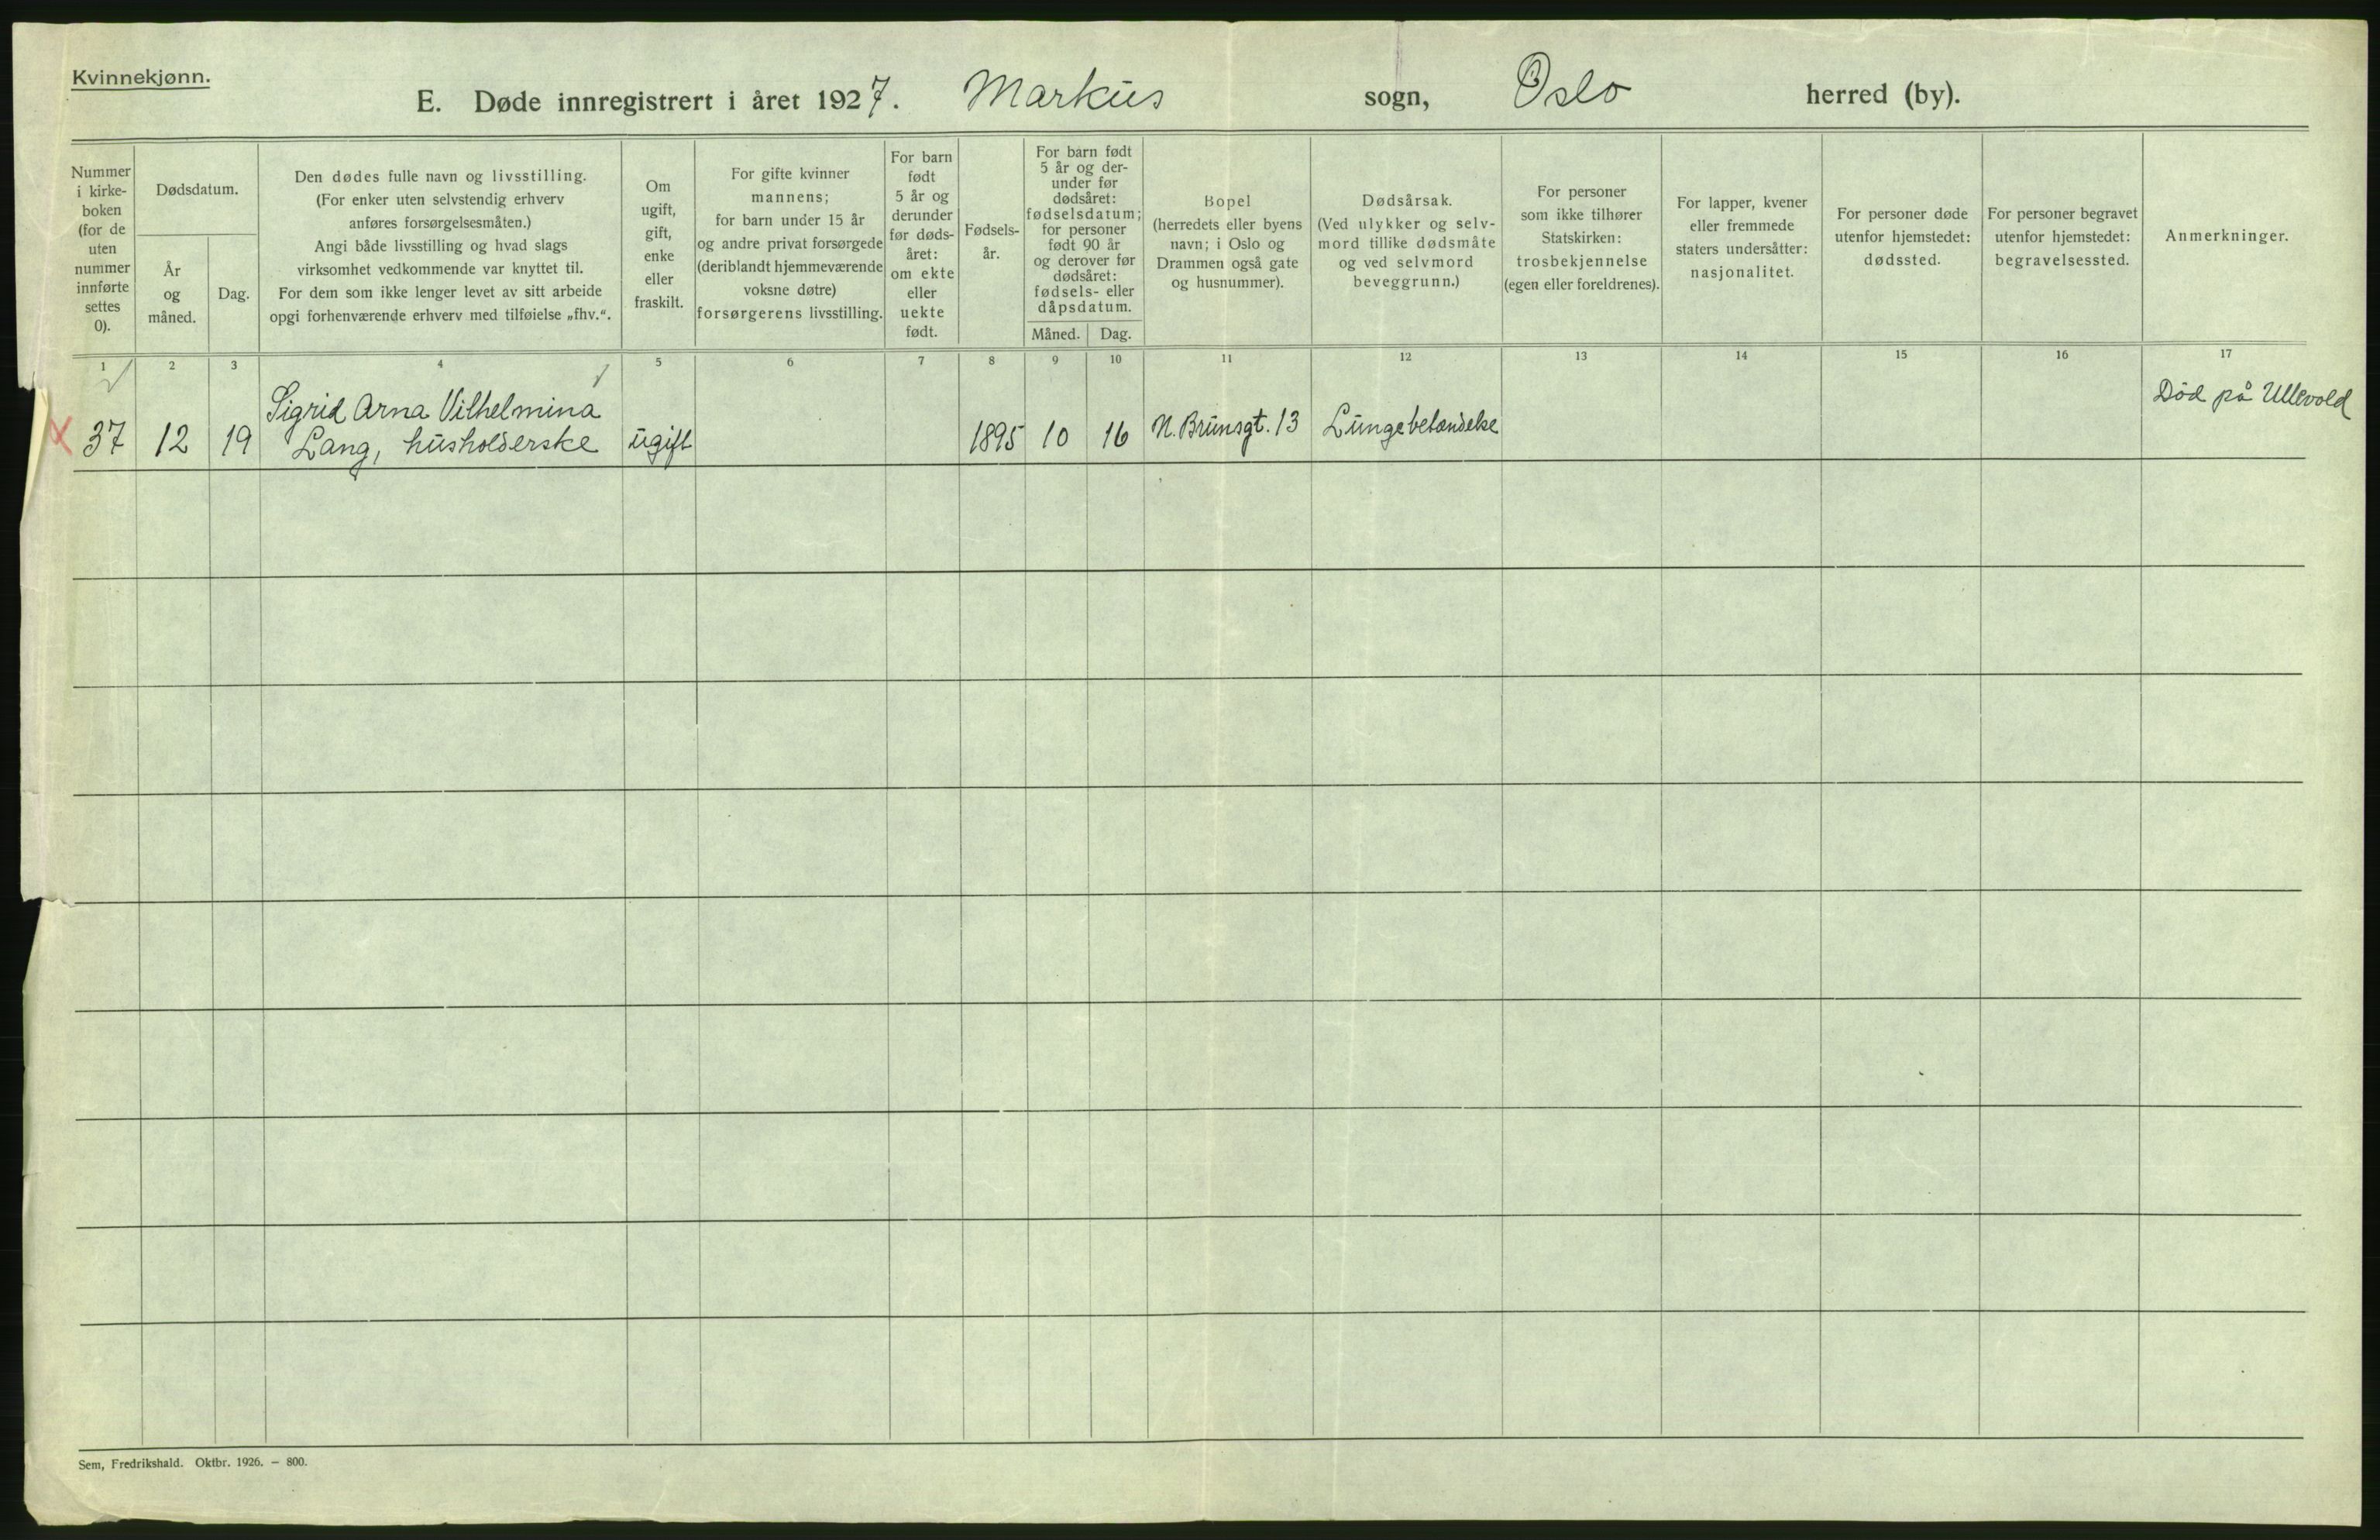 Kvinnekjønn.
E. Døde innregistrert i året 1927. Markus sogn, Oslo herred (by).
Nummer
i kirke-
boken
(for de
uten
nummer
innførte
settes
0).
Dødsdatum.
År
og
måned.
Dag.
Den dødes fulle navn og livsstilling.
(For enker uten selvstendig erhverv
anføres forsørgelsesmåten.)
Angi både livsstilling og hvad slags
virksomhet vedkommende var knyttet til.
For dem som ikke lenger levet av sitt arbeide
opgi forhenværende erhverv med tilføielse „fhv.“.
Om
ugift,
gift,
enke
eller
fraskilt.
For gifte kvinner
mannens;
for barn under 15 år
og andre privat forsørgede
(deriblandt hjemmeværende
voksne døtre)
forsørgerens livsstilling.
For barn
født
5 år og
derunder
før døds-
året:
om ekte
eller
uekte
født.
Fødsels-
år.
For barn født
5 år og der-
under før
dødsåret:
fødselsdatum;
for personer
født 90 år
og derover før
dødsåret:
fødsels- eller
dåpsdatum.
Måned. Dag.
Bopel
(herredets eller byens
navn; i Oslo og
Drammen også gate
og husnummer).
Dødsårsak.
(Ved ulykker og selv-
mord tillike dødsmåte
og ved selvmord
beveggrunn.)
For personer
som ikke tilhører
Statskirken:
trosbekjennelse
(egen eller foreldrenes).
For lapper, kvener
eller fremmede
staters undersåtter:
nasjonalitet.
For personer døde
utenfor hjemstedet:
dødssted.
For personer begravet
utenfor hjemstedet:
begravelsessted.
Anmerkninger.
1 2 3 4 5 6 7 8 9 10 11 12 13 14 15 16 17
Sigrid Arna Vilhelmina
Død på Ullevold
37 12 19 Lang, husholderske ugift 1895 10 16 N. Brunsgt. 13 Lungebetændelse
Sem, Fredrikshald. Oktbr. 1926. — 800.